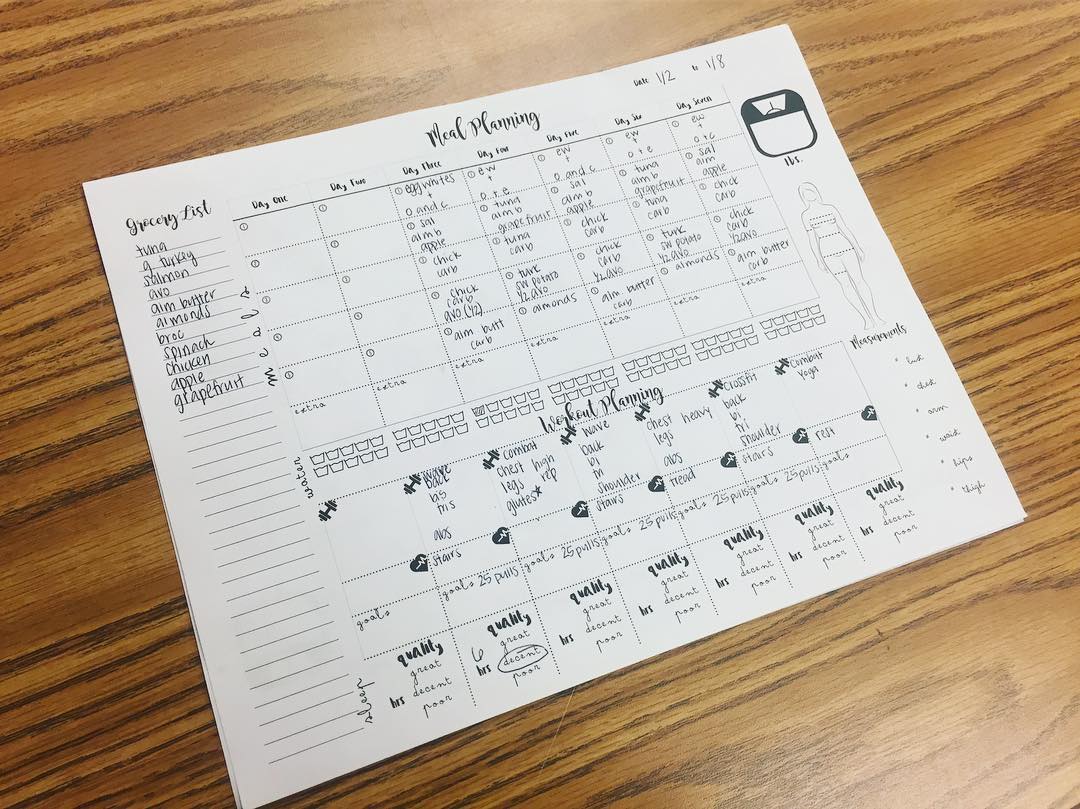 Date 1/2 to 1/8
Meal Planning
Grocery List
tuna
g. turkey
salmon
avo
alm butter
almonds
broc
spinach
chicken
apple
grapefruit
meals
Day One
①
②
③
④
⑤
extra
Day Two
①
②
③
④
⑤
extra
Day Three
① egg whites
+
o and c
② sal
alm b
apple
③ chick
carb
④ chick
carb
avo (1/2)
⑤ alm butt
carb
extra
Day Four
① ew
+
o + e
② tuna
alm b
grapefruit
③ tuna
carb
④ turk
sw potato
1/2 avo
⑤ almonds
extra
Day Five
① ew
+
o and c
② sal
alm b
apple
③ chick
carb
④ chick
carb
1/2 avo
⑤ alm butter
carb
extra
Day Six
① ew
+
o + e
② tuna
alm b
grapefruit
③ tuna
carb
④ turk
sw potato
1/2 avo
⑤ almonds
extra
Day Seven
① ew
+
o + c
② sal
alm
apple
③ chick
carb
④ chick
carb
1/2 avo
⑤ alm butter
carb
extra
lbs.
water
Workout Planning
wave
back
bis
tris
abs
stairs
combat
chest high
legs rep
glutes*
wave
back
bi
tri
shoulder
stairs
chest heavy
legs
abs
tread
crossfit
back
bi
tri
shoulder
stairs
combat
yoga
rest
goals
goals 25 pulls
goals 25 pulls
goals 25 pulls
goals 25 pulls
goals 25 pulls
goals
Measurements
* bust
* chest
* arm
* waist
* hips
* thigh
sleep
quality
great
hrs decent
poor
quality
6 great
hrs decent
poor
quality
great
hrs decent
poor
quality
great
hrs decent
poor
quality
great
hrs decent
poor
quality
great
hrs decent
poor
quality
great
hrs decent
poor